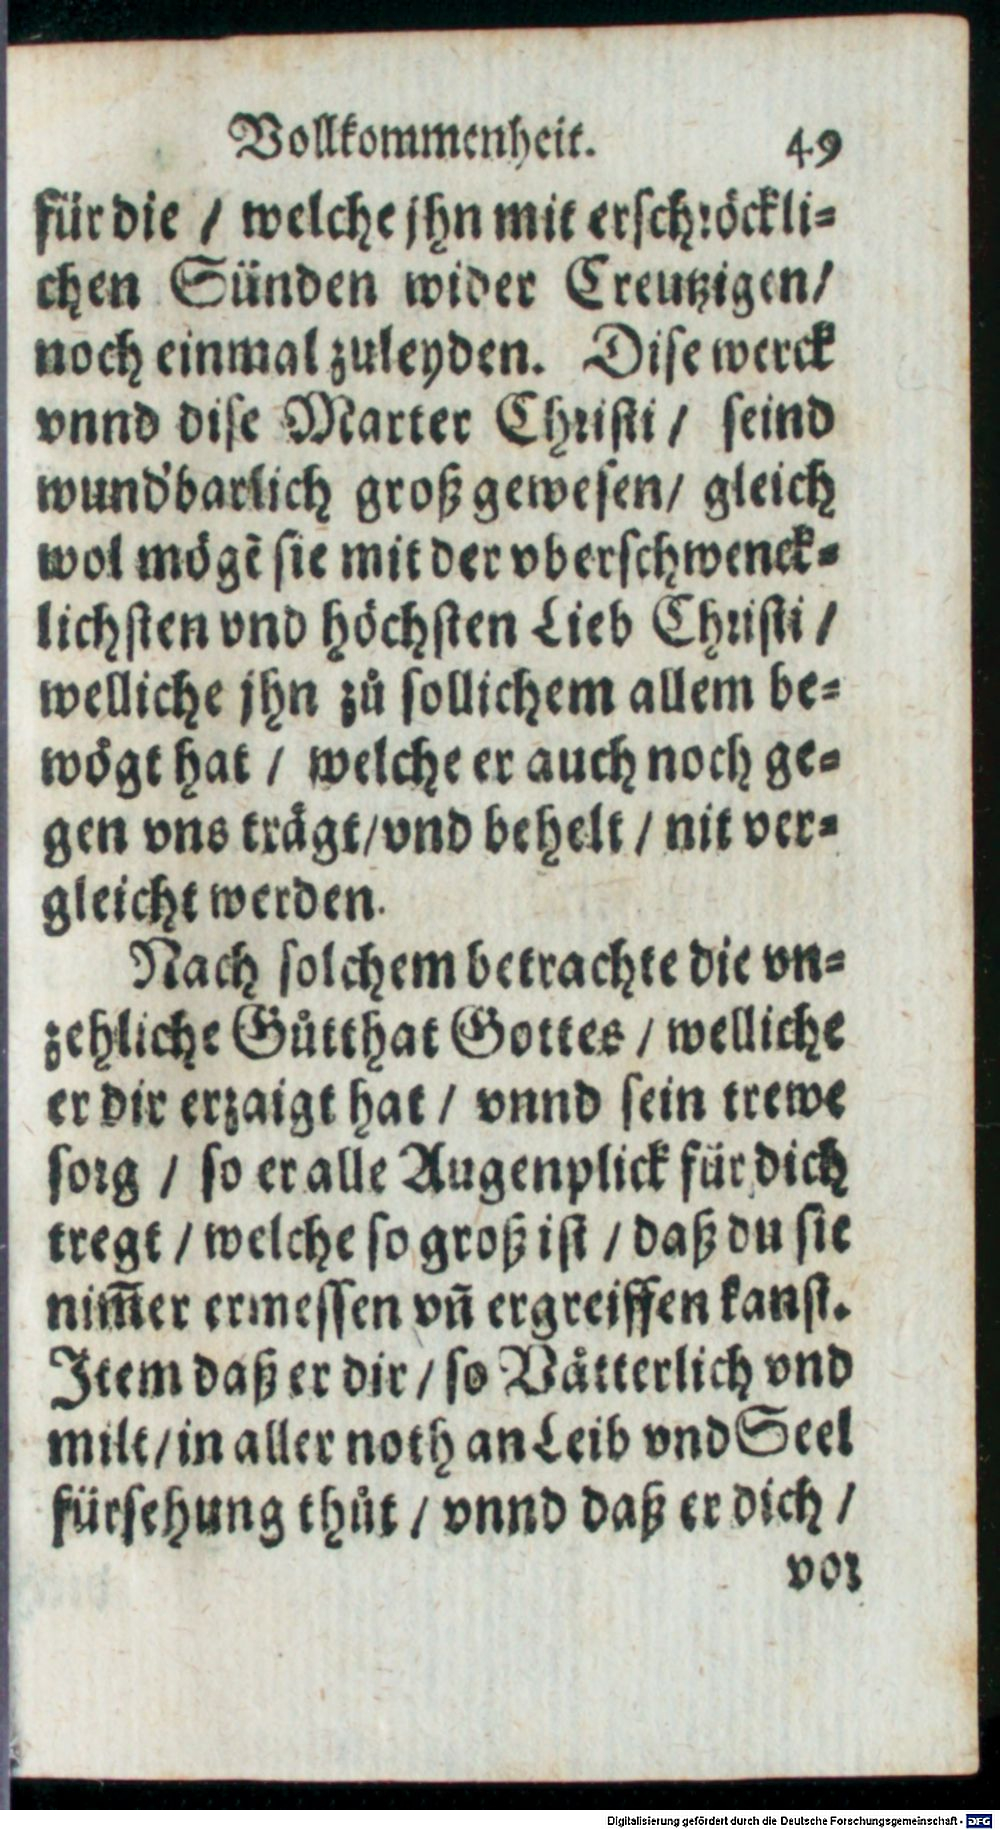 Vollkommenheit. 49
für die / welche jhn mit erschröckli-
chen Sünden wider Creutzigen/
noch einmal zuleyden. Dise werck
vnnd dise Marter Christi / seind
wund'barlich groß gewesen/ gleich
wol mögẽ sie mit der vberschwenck-
lichsten vnd höchsten Lieb Christi /
welliche jhn zů sollichem allem be-
wögt hat / welche er auch noch ge-
gen vns trägt/vnd behelt / nit ver-
gleicht werden.
Nach solchem betrachte die vn-
zehliche Gůtthat Gottes / welliche
er dir erzaigt hat / vnnd sein trewe
sorg / so er alle Augenplick für dich
tregt / welche so groß ist / daß du sie
nim̅er ermessen vn̅ ergreiffen kanst.
Item daß er dir / so Vätterlich vnd
milt/in aller noth an Leib vnd Seel
fürsehung thůt / vnnd daß er dich /
vor
Digitalisierung gefördert durch die Deutsche Forschungsgemeinschaft - DFG